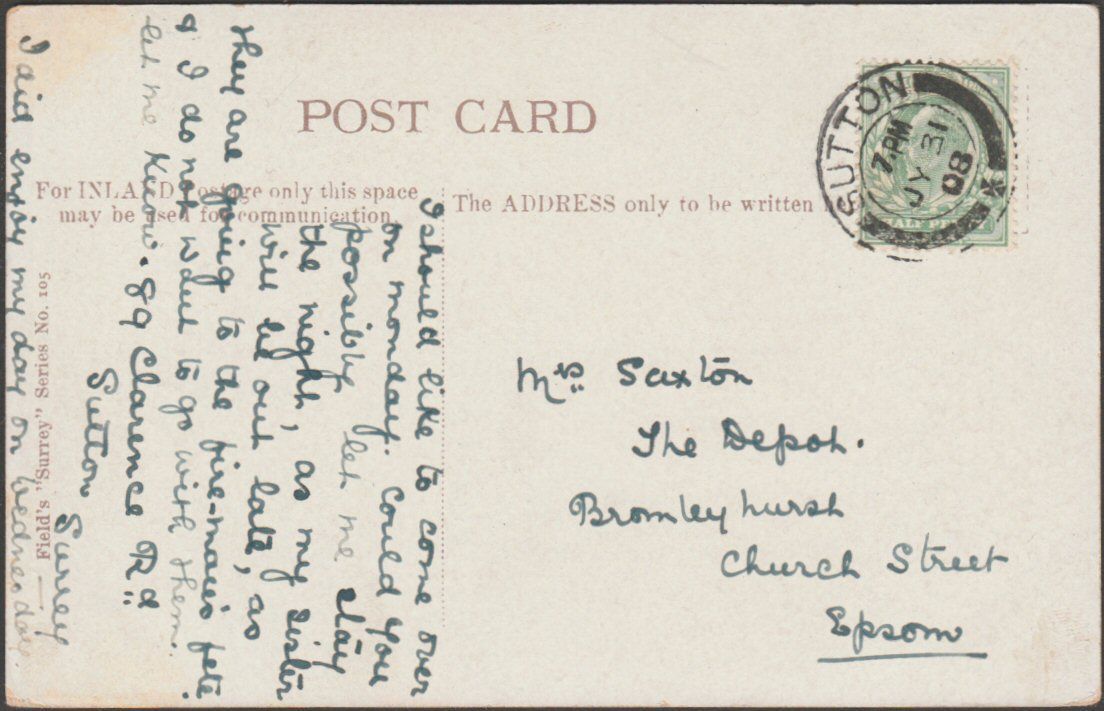 POST CARD
For INLAND Postage only this space
may be used for communication.
The ADDRESS only to be written
SUTTON
7.PM
JY 31
08
HALF PENNY
I should like to come over
on monday. Could you
possibly let me stay
the night, as my sister
will be out late, as
they are going to the fire-man's fete
& I do not want to go with them.
let me know. 89 Clarence Rd
Sutton
Surrey
I did enjoy my day on wednesday.
Field's "Surrey" Series No. 105
Mrs Saxton
The Depot.
Bromleyhurst
Church Street
Epsom